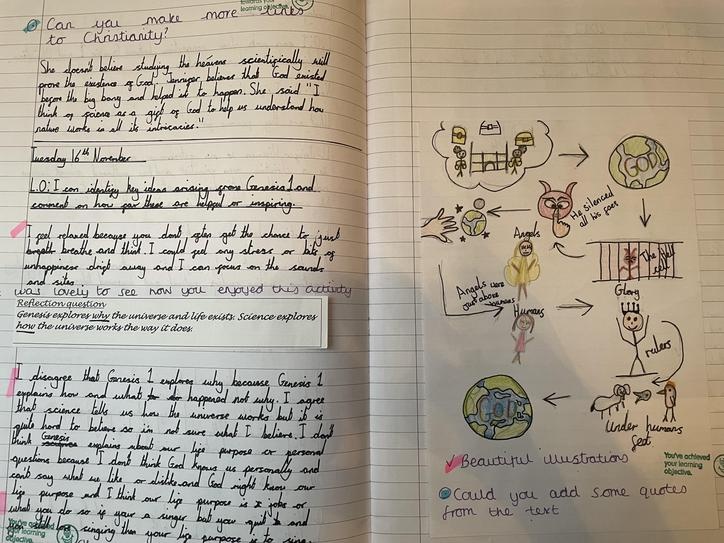 towards your
learning objective.
Can you make more links
to Christianity?
She doesn't believe studying the heavens scientifically will
prove the existence of God. Jennifer believes that God existed
before the big bang and helped it to happen. She said "I
think of science as a gift of God to help us understand how
nature works in all its intricacies."
Tuesday 16th November
L.O: I can identify key ideas arising from Genesis 1 and
comment on how far these are helpful or inspiring.
I feel relaxed because you don't often get the chance to just
breathe and think. I could feel any stress or bits of
unhappiness drift away and I can focus on the sounds
and sites.
was lovely to see how you enjoyed this activity
Reflection question
Genesis explores why the universe and life exists. Science explores
how the universe works the way it does.
I disagree that Genesis 1 explores why because Genesis 1
explains how and what happened not why. I agree
that science tells us how the universe works but it is
quite hard to believe so im not sure what I believe. I don't
think Genesis explains about our life purpose or personal
questions because I don't think God knows us personally and
can't say what we like or dislike and God might know our
life purpose and I think our life purpose is jobs or
what you do so if your a singer but you quit and
you still love singing then your life purpose is to sing.
You've achieved
your learning
objective.
GOD
He silenced
all his foes
The Hell
cell
Angels
Angels were
just above
humans
Humans
Glory
rulers
Under humans
feet
GOD
Beautiful illustrations
You've achieved
your learning
objective.
Could you add some quotes
from the text